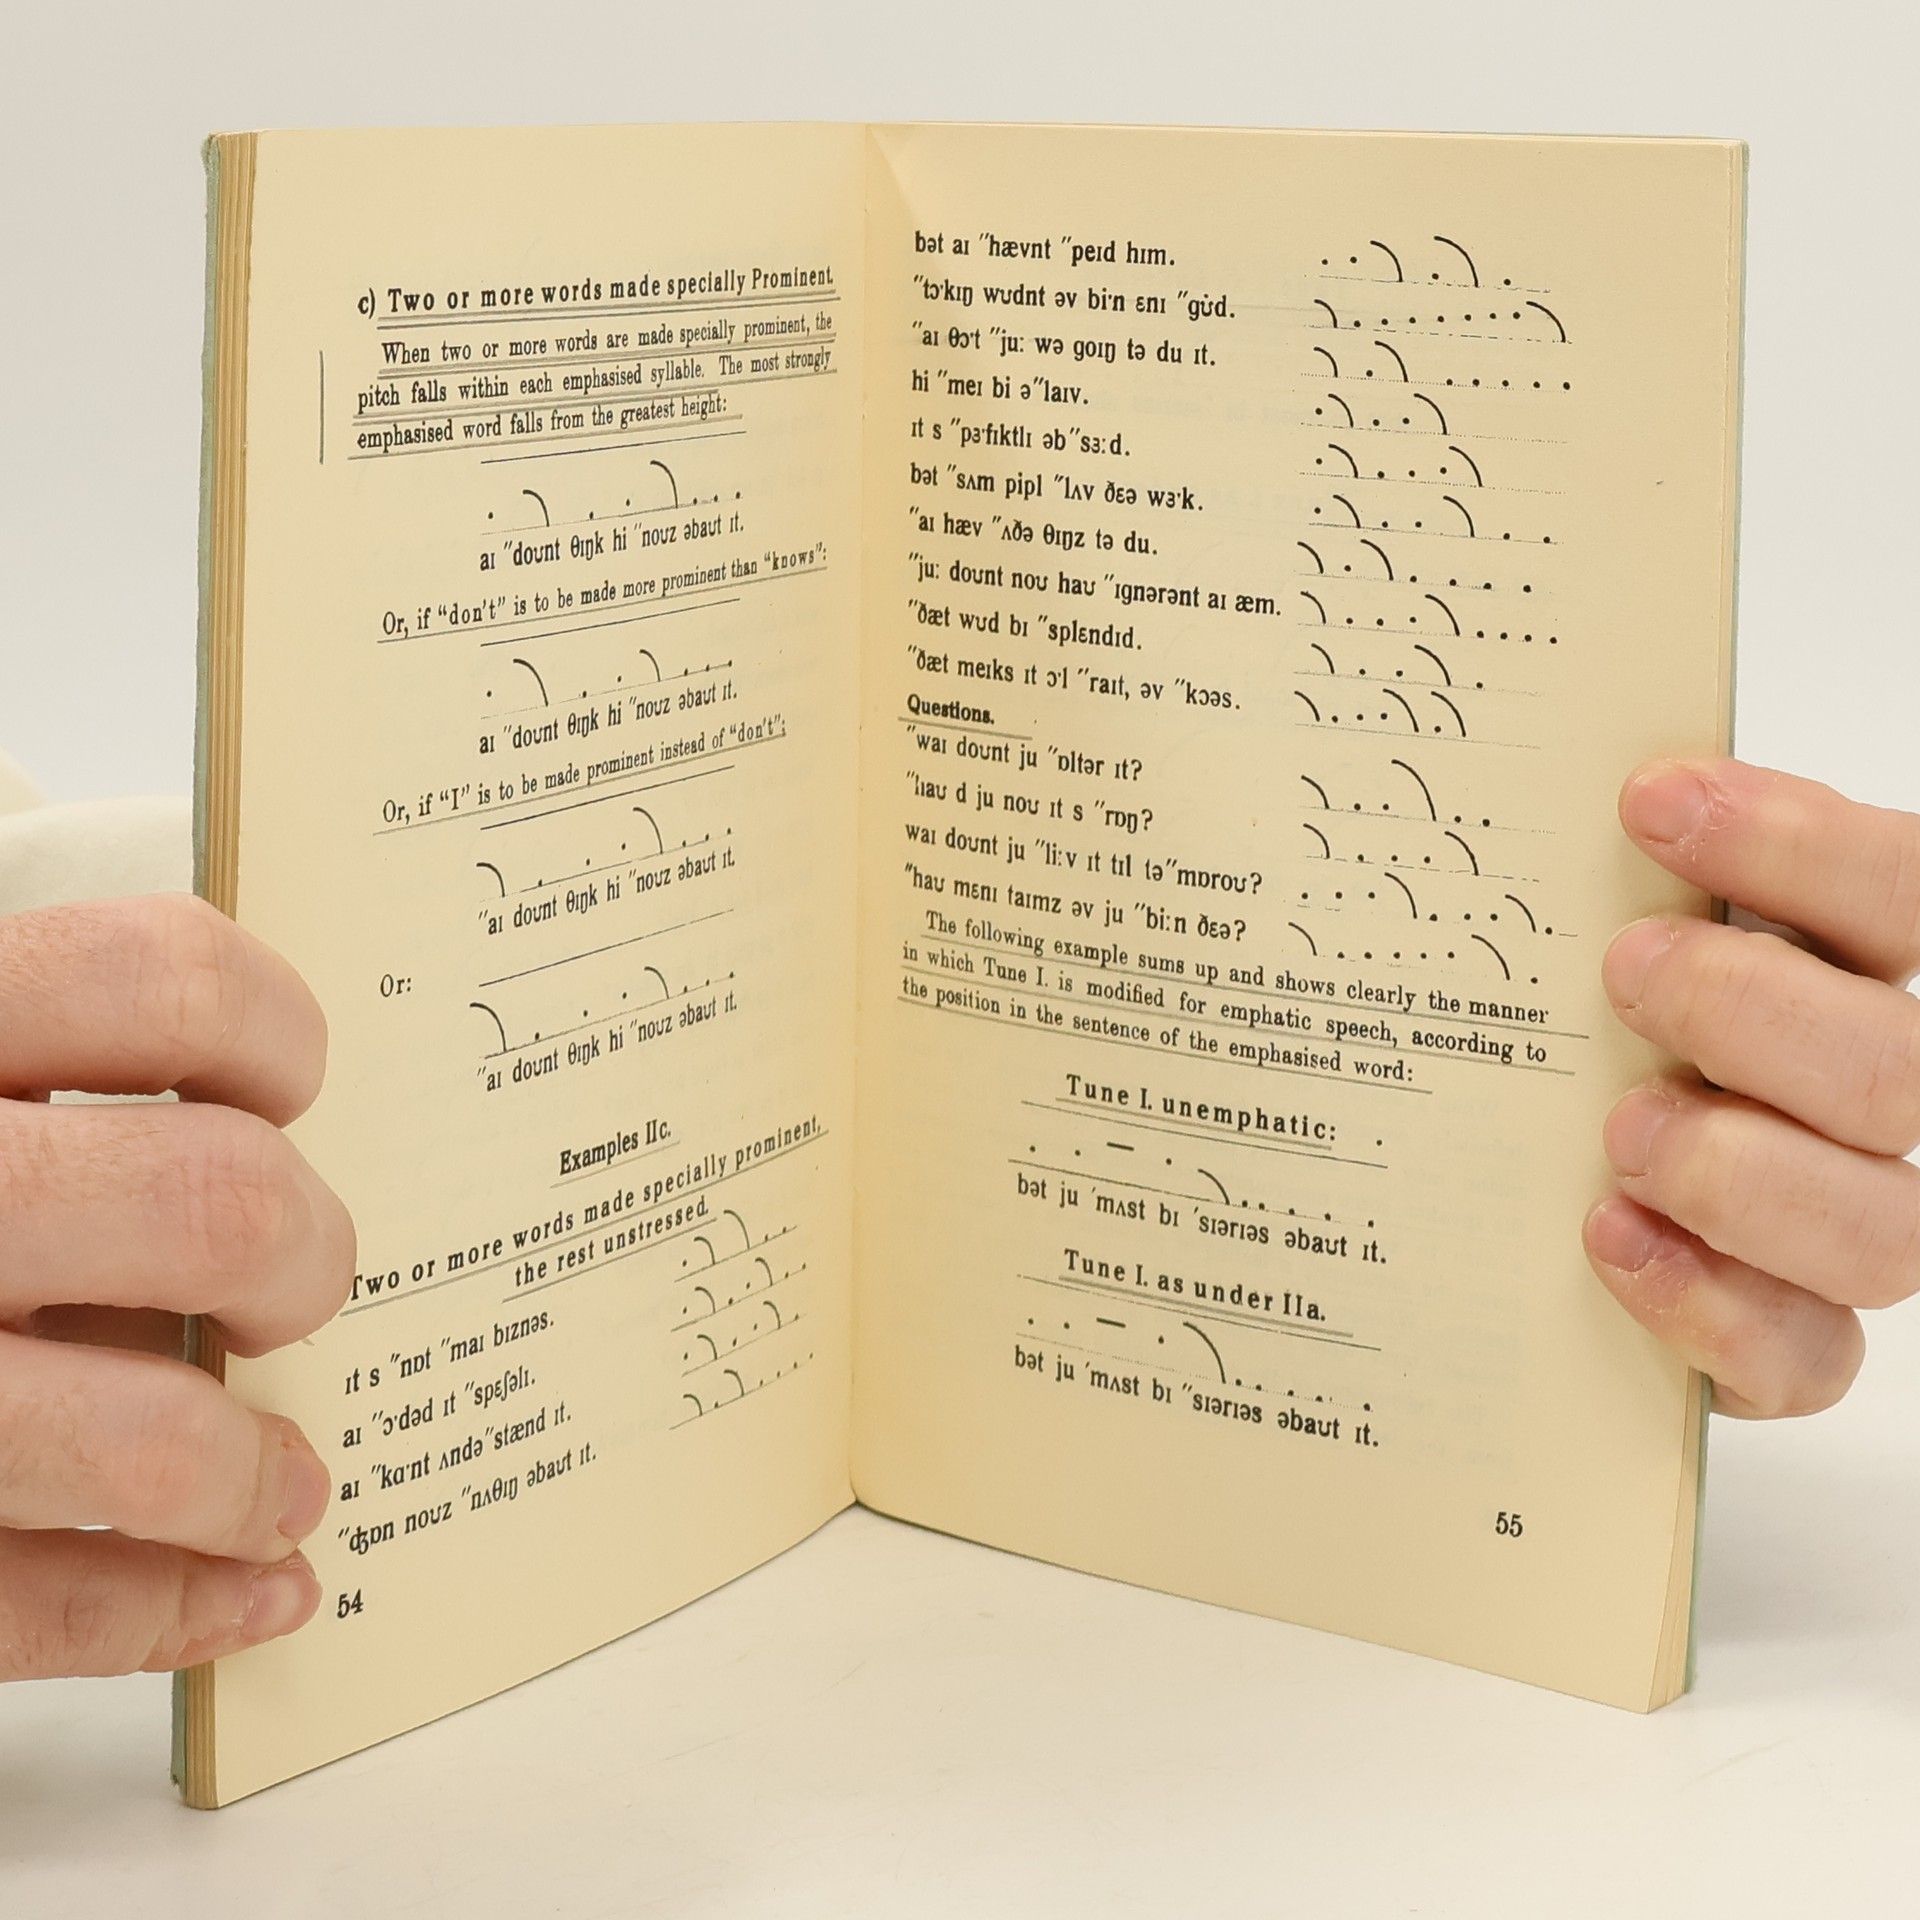 c) Two or more words made specially Prominent.
When two or more words are made specially prominent, the
pitch falls within each emphasised syllable. The most strongly
emphasised word falls from the greatest height:
aɪ ″doʊnt θɪŋk hi ″noʊz əbaʊt ɪt.
Or, if “don't” is to be made more prominent than “knows”:
aɪ ″doʊnt θɪŋk hi ″noʊz əbaʊt ɪt.
Or, if “I” is to be made prominent instead of “don't”:
″aɪ doʊnt θɪŋk hi ″noʊz əbaʊt ɪt.
Or:
″aɪ doʊnt θɪŋk hi ″noʊz əbaʊt ɪt.
Examples IIc.
Two or more words made specially prominent,
the rest unstressed.
ɪt s ″nɒt ″maɪ bɪznəs.
aɪ ″ɔˑdəd ɪt ″spɛʃəlɪ.
aɪ ″kɑˑnt ʌndə″stænd ɪt.
″ʤɒn noʊz ″nʌθɪŋ əbaʊt ɪt.
54
bət aɪ ″hævnt ″peɪd hɪm.
″tɔˑkɪŋ wʊdnt əv biˑn ɛnɪ ″gʊd.
″aɪ θɔˑt ″juː wə goɪŋ tə du ɪt.
hi ″meɪ bi ə″laɪv.
ɪt s ″pɜˑfɪktlɪ əb″sɜːd.
bət ″sʌm pipl ″lʌv ðɛə wɜˑk.
″aɪ hæv ″ʌðə θɪŋz tə du.
″juː doʊnt noʊ haʊ ″ɪgnərənt aɪ æm.
″ðæt wʊd bɪ ″splɛndɪd.
″ðæt meɪks ɪt ɔˑl ″raɪt, əv ″kɔəs.
Questions.
″waɪ doʊnt ju ″ɒltər ɪt?
″haʊ d ju noʊ ɪt s ″rɒŋ?
waɪ doʊnt ju ″liːv ɪt tɪl tə″mɒroʊ?
″haʊ mɛnɪ taɪmz əv ju ″biːn ðɛə?
The following example sums up and shows clearly the manner
in which Tune I. is modified for emphatic speech, according to
the position in the sentence of the emphasised word:
Tune I. unemphatic:
bət ju ′mʌst bɪ ′sɪərɪəs əbaʊt ɪt.
Tune I. as under IIa.
bət ju ′mʌst bɪ ″sɪərɪəs əbaʊt ɪt.
55